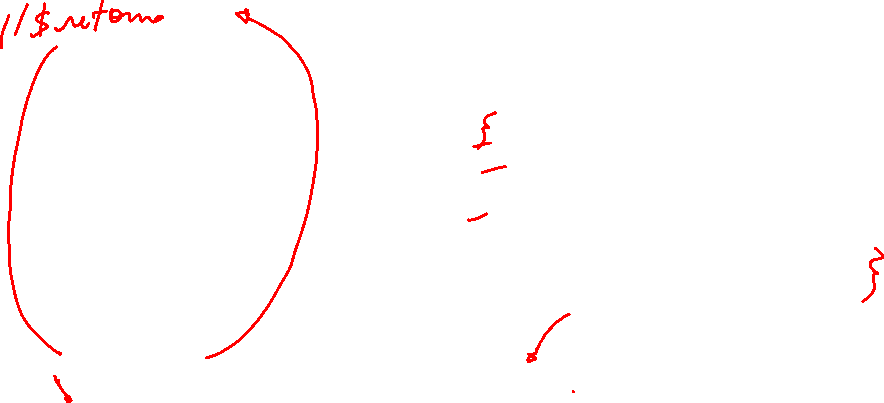 //$retorno
{
}